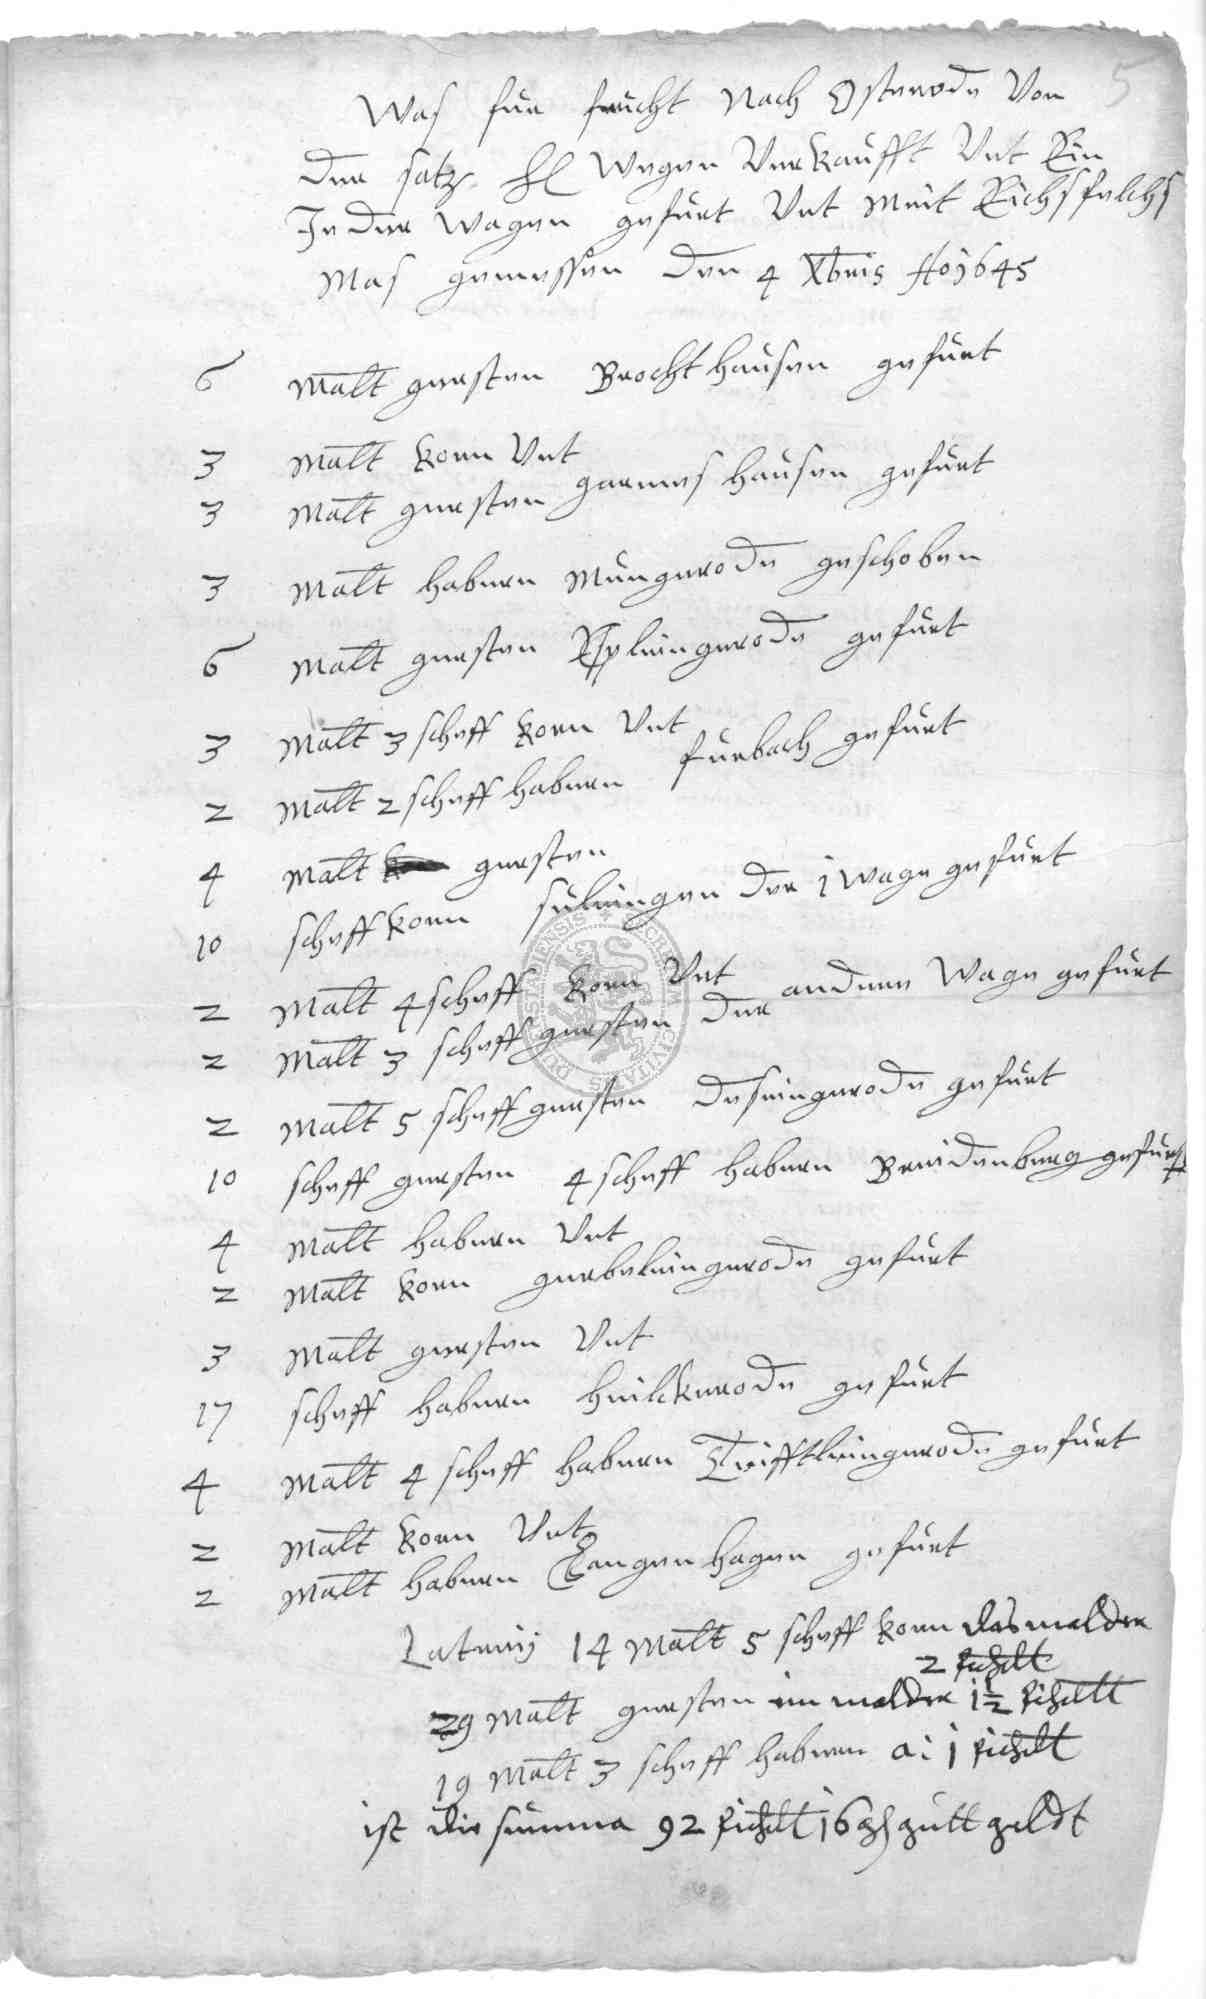 5
Was für frücht Nach Osterode Von
Der satz Hl Wegen Verkaufft Vnt Ein
Jeder Wagen gefürt Vnt Mit Eichsfelchs
Mas gemessen Den 4 Xbris Ao 1645
6 Malt gersten Brochthausen gefürt
3 Malt korn Vnt
3 Malt gersten garmeshausen gefürt
3 Malt habern Müngerode geschoben
6 Malt gersten Esplingerode gefürt
3 Malt 3 scheff korn Vnt
2 Malt 2 scheff habern fürbach gefürt
4 Malt gersten
10 scheff korn sülingen Der 1 Wage gefürt
2 Malt 4 scheff korn Vnt
2 Malt 3 scheff gersten Der andere Wage gefürt
2 Malt 5 scheff gersten Desingerode gefürt
10 scheff gersten 4 scheff habern Breidenberg gefürt
4 Malt habern Vnt
2 Malt korn gerbelingerode gefürt
3 Malt gersten Vnt
17 scheff habern hilckerode gefürt
4 Malt 4 scheff habern Tifftlingerode gefürt
2 Malt korn Vnt
2 Malt habern Langenhagen gefürt
Laterij 14 Malt 5 scheff korn das malder
2
29 Malt gersten im malder 1½
19 Malt 3 scheff habern a: 1
ist die summa 92 16 gutt geldt
SECRETUM CIVITATIS DUDERSTADENSIS